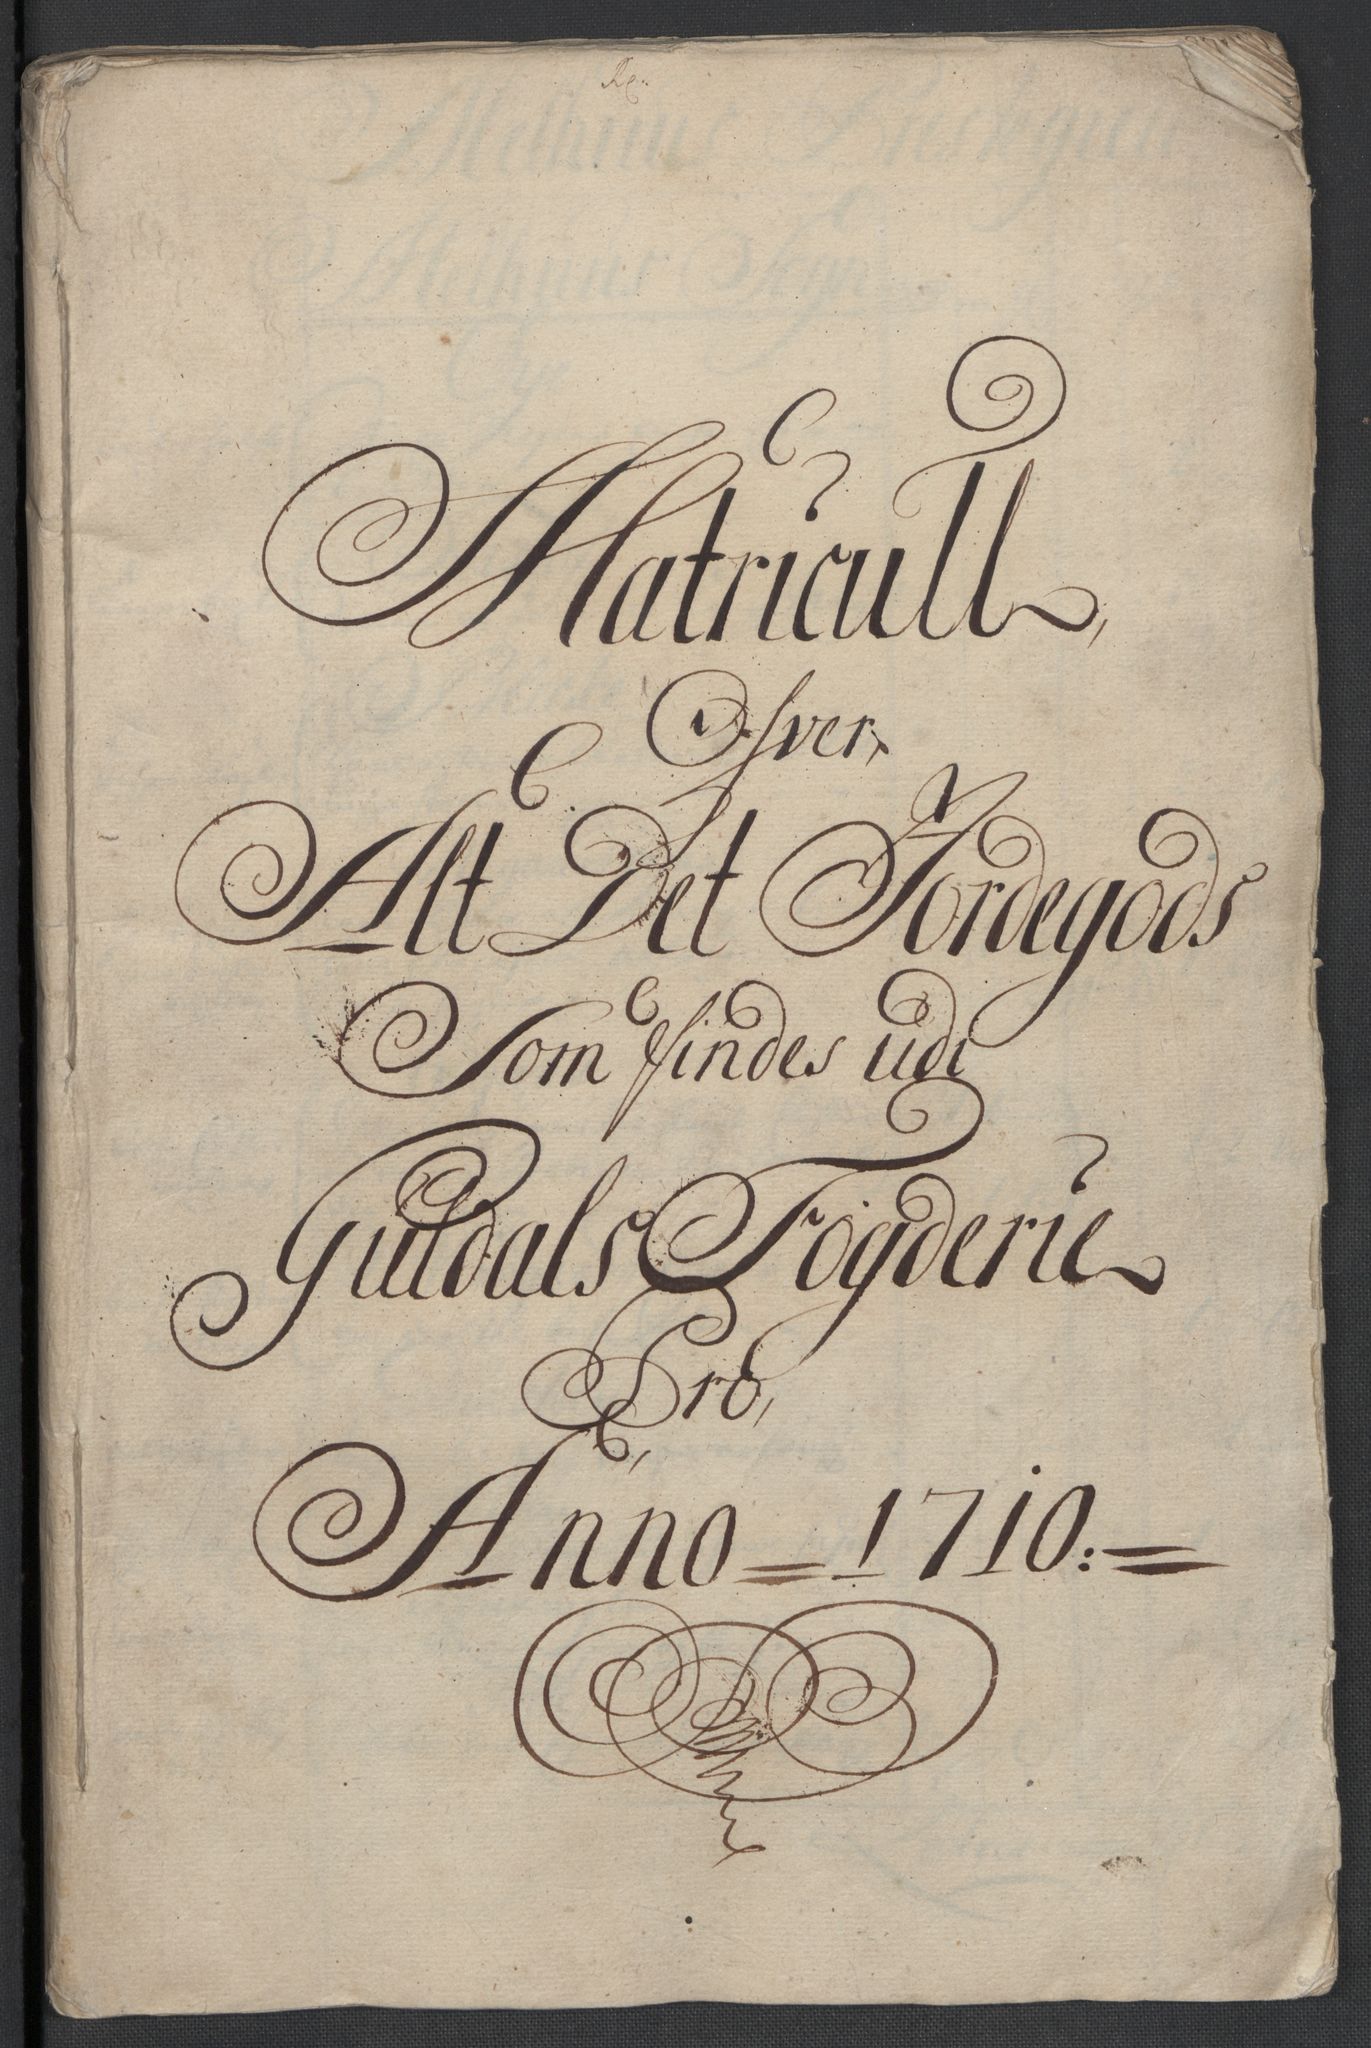 Matricull,
Ofver,
Alt Det Jordegods
Som findes udi
Guldals Fogderie
Pro,
Anno = 1710:=